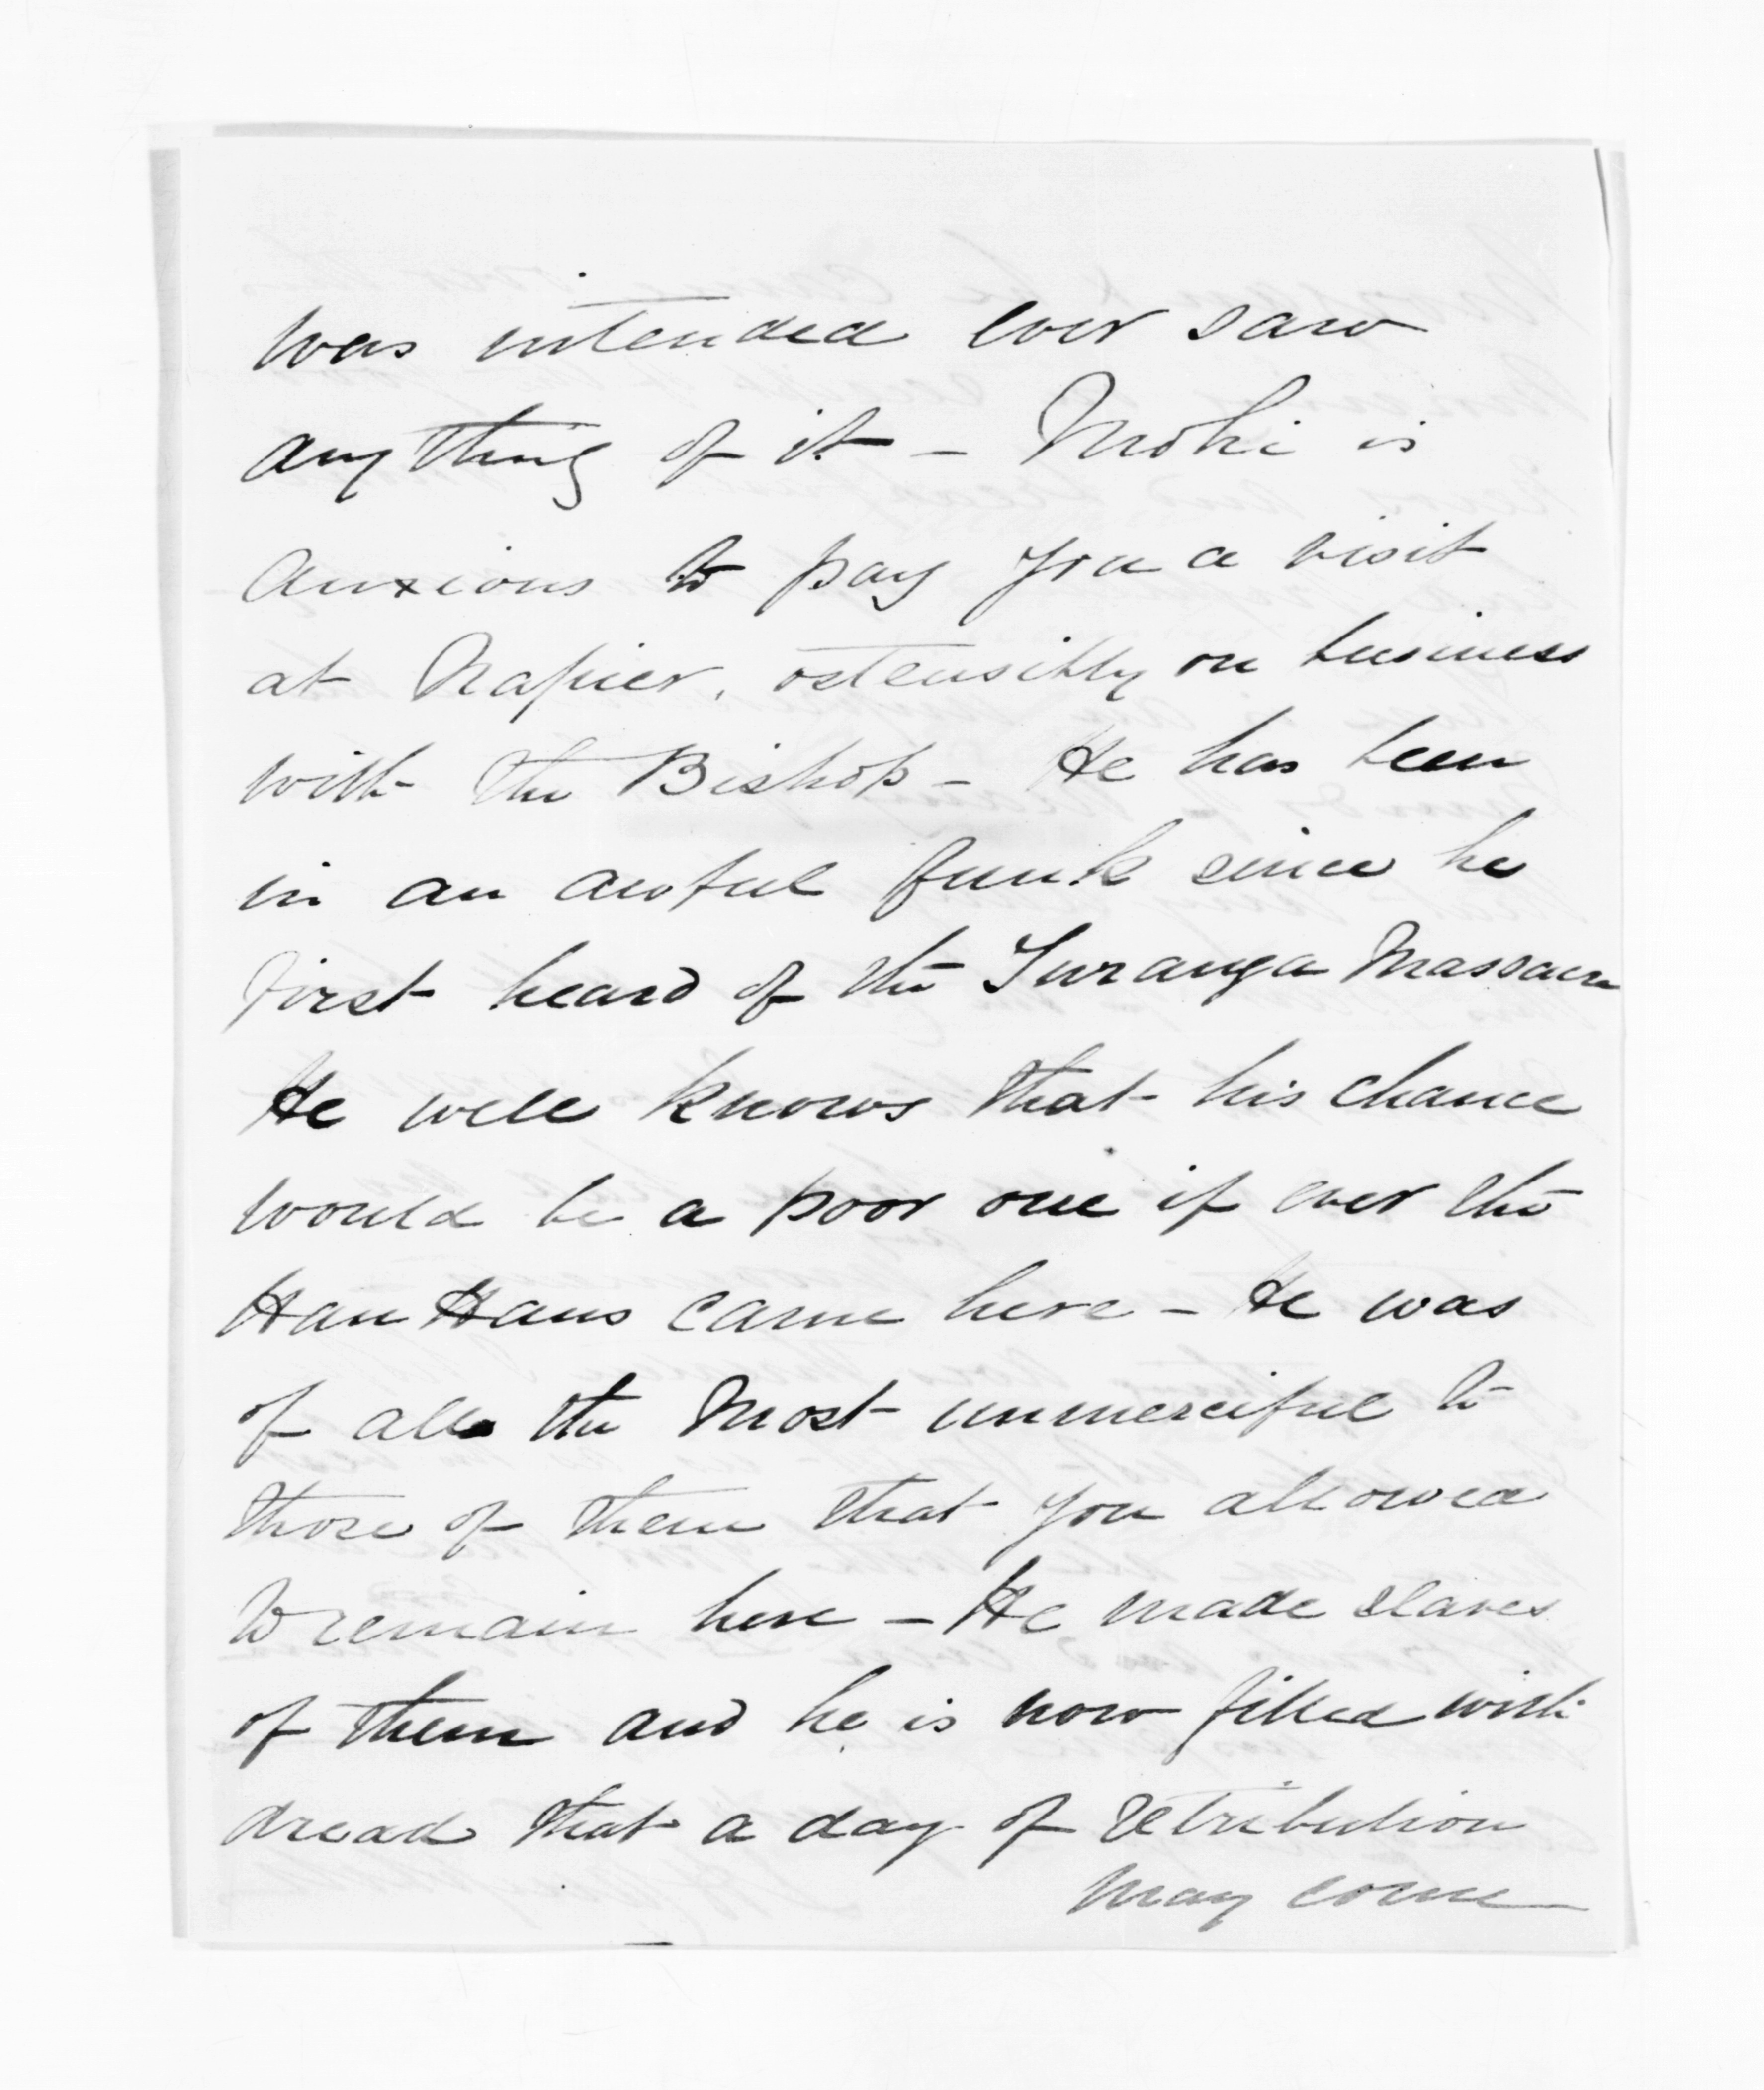 was intended ever saw
anything of it – Mohi is
anxious to pay you a visit
at Napier, ostensibly on business
with the Bishop – He has been
in an awful funk since he
first heard of the Turanga Massacre
He well knows that his chance
would be a poor one if ever the
Hau Haus came here – He was
of all the most unmerciful to
those of them that you allowed
to remain here – He made slaves
of them and he is now filled with
dread that a day of retribution
may come